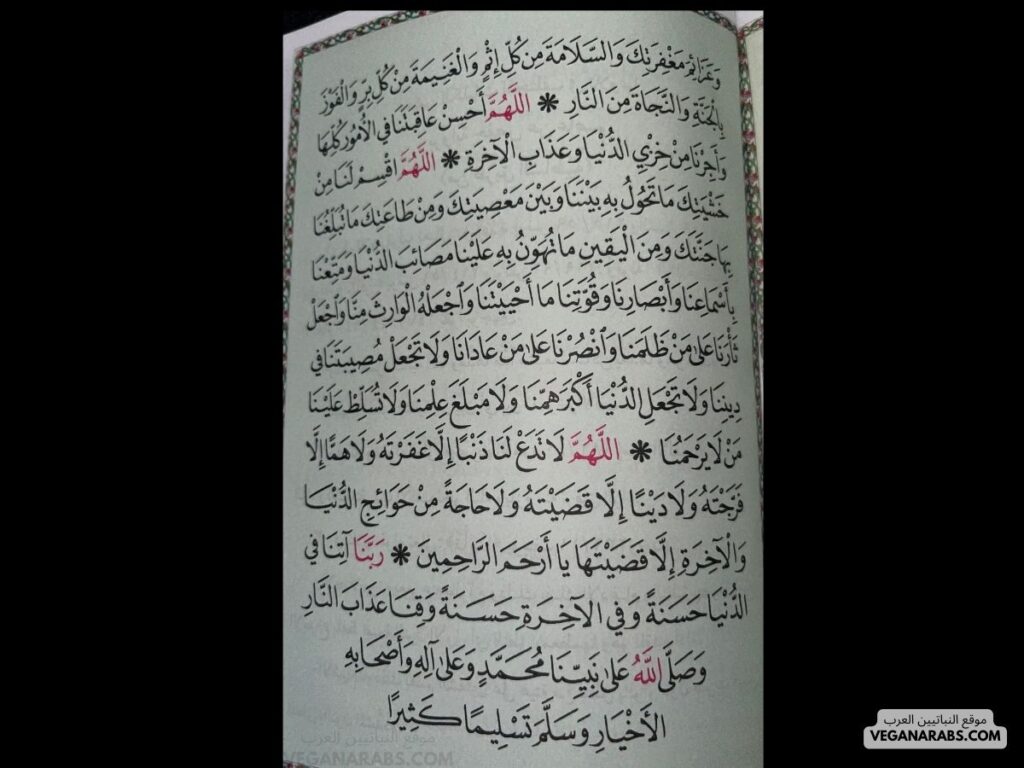 وَعَزَائِمَ مَغْفِرَتِكَ وَالسَّلَامَةَ مِن كُلِّ إِثْمٍ وَالْغَنِيمَةَ مِنْ كُلِّ بِرٍّ وَالْفَوْزَ
بِالْجَنَّةِ وَالنَّجَاةَ مِنَ النَّارِ * اللَّهُمَّ أَحْسِنْ عَاقِبَتَنَا فِي الْأُمُورِ كُلِّهَا
وَأَجِرْنَا مِنْ خِزْيِ الدُّنْيَا وَعَذَابِ الْآخِرَةِ * اللَّهُمَّ اقْسِمْ لَنَا مِنْ
خَشْيَتِكَ مَا تَحُولُ بِهِ بَيْنَنَا وَبَيْنَ مَعْصِيَتِكَ وَمِنْ طَاعَتِكَ مَا تُبَلِّغُنَا
بِهَا جَنَّتَكَ وَمِنَ الْيَقِينِ مَا تُهَوِّنُ بِهِ عَلَيْنَا مَصَائِبَ الدُّنْيَا وَمَتِّعْنَا
بِأَسْمَاعِنَا وَأَبْصَارِنَا وَقُوَّتِنَا مَا أَحْيَيْتَنَا وَاجْعَلْهُ الْوَارِثَ مِنَّا وَاجْعَلْ
ثَأْرَنَا عَلَى مَنْ ظَلَمَنَا وَانْصُرْنَا عَلَى مَنْ عَادَانَا وَلَا تَجْعَلْ مُصِيبَتَنَا فِي
دِينِنَا وَلَا تَجْعَلِ الدُّنْيَا أَكْبَرَ هَمِّنَا وَلَا مَبْلَغَ عِلْمِنَا وَلَا تُسَلِّطْ عَلَيْنَا
مَنْ لَا يَرْحَمُنَا * اللَّهُمَّ لَا تَدَعْ لَنَا ذَنْبًا إِلَّا غَفَرْتَهُ وَلَا هَمًّا إِلَّا
فَرَّجْتَهُ وَلَا دَيْنًا إِلَّا قَضَيْتَهُ وَلَا حَاجَةً مِنْ حَوَائِجِ الدُّنْيَا
وَالْآخِرَةِ إِلَّا قَضَيْتَهَا يَا أَرْحَمَ الرَّاحِمِينَ * رَبَّنَا آتِنَا فِي
الدُّنْيَا حَسَنَةً وَفِي الْآخِرَةِ حَسَنَةً وَقِنَا عَذَابَ النَّارِ
وَصَلَّى اللَّهُ عَلَى نَبِيِّنَا مُحَمَّدٍ وَعَلَى آلِهِ وَأَصْحَابِهِ
الْأَخْيَارِ وَسَلَّمَ تَسْلِيمًا كَثِيرًا
موقع النباتيين العرب
VEGANARABS.COM
موقع النباتيين العرب
VEGANARABS.COM